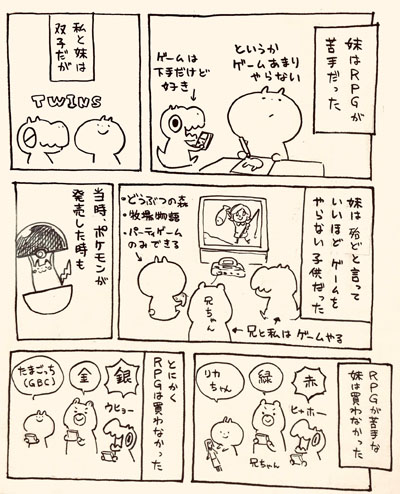 妹はRPGが
苦手だった
というか
ゲームあまり
やらない
ゲームは
下手だけど
好き
私と妹は
双子だが
TWINS
妹は殆どと言って
いいほどゲームを
やらない子供だった
・どうぶつの森
・牧場物語
・パーティゲーム
のみできる
兄ちゃん
兄と私はゲームやる
当時、ポケモンが
発売した時も
RPGが苦手な
妹は買わなかった
赤
ヒャホー
緑
兄ちゃん
リカ
ちゃん
とにかく
RPGは買わなかった
銀
ウヒョー
金
たまごっち
(GBC)